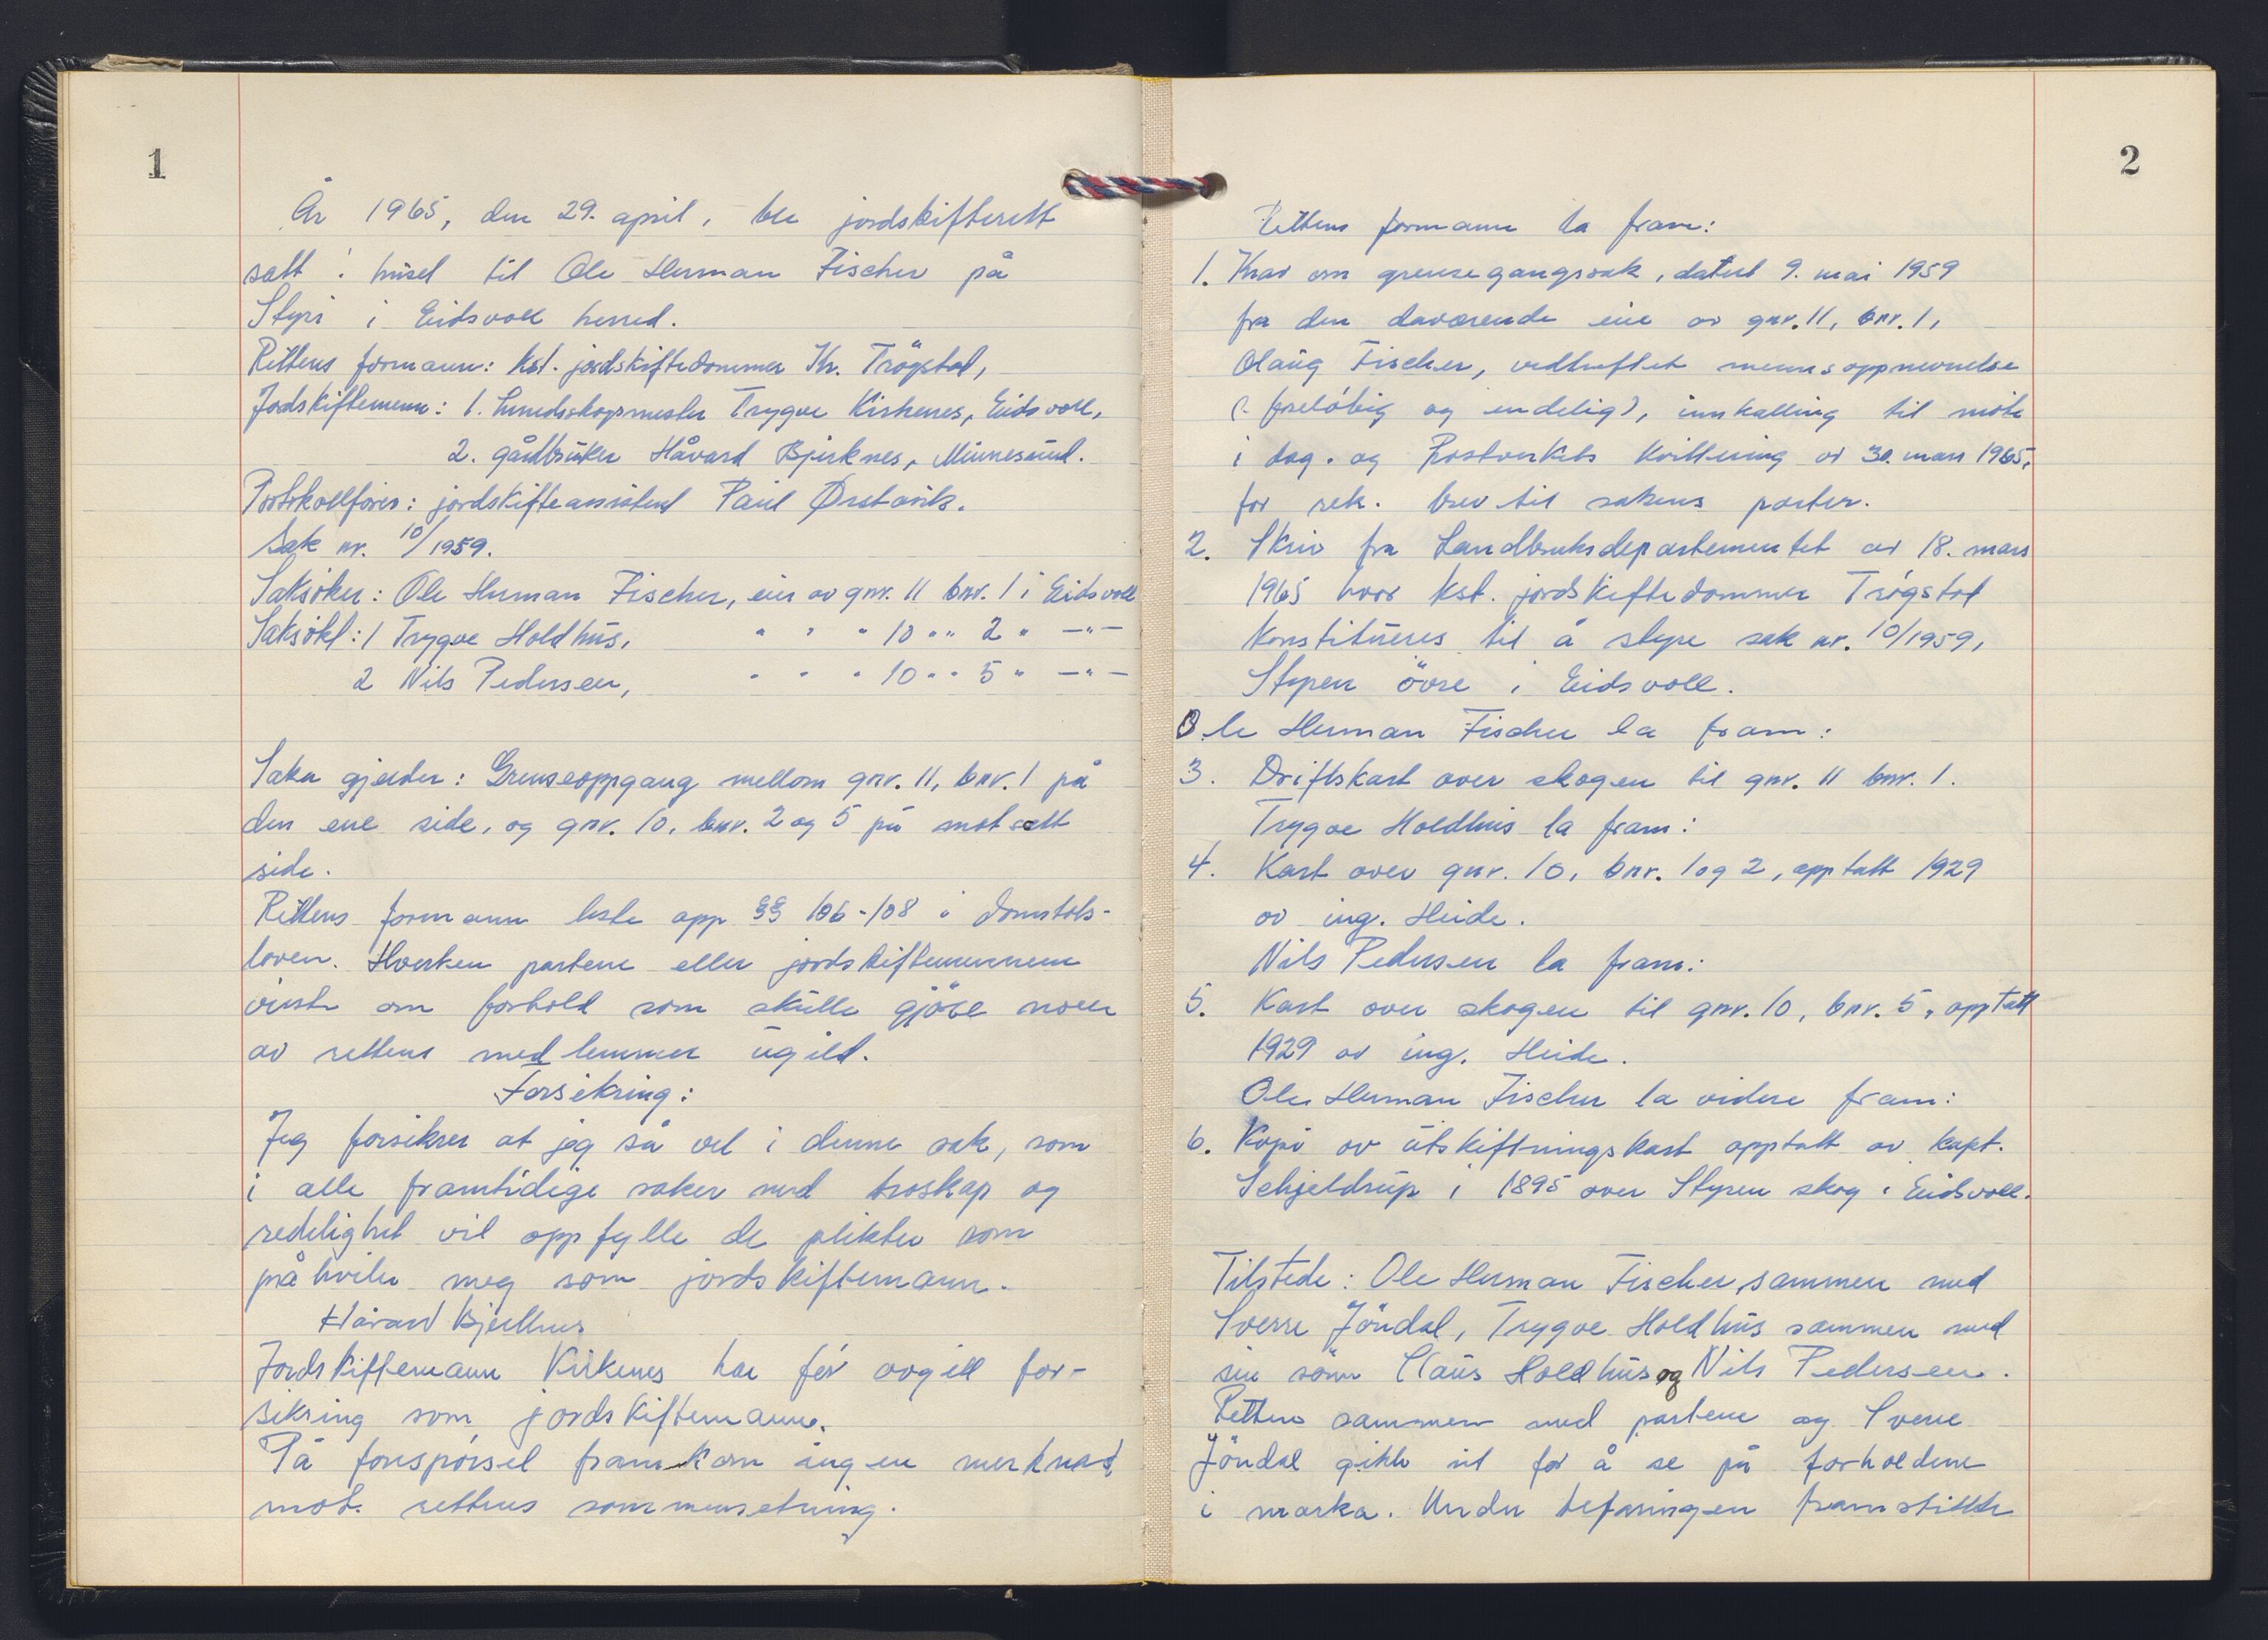 1
År 1965, den 29. april, ble jordskifterett
satt i huset til Ole Herman Fischer på
Styri i Eidsvoll herred.
Rettens formann: kst. jordskiftedommer Kr. Trögstad,
Jordskiftemenn: 1. herredsskogmester Trygve Kirkenes, Eidsvoll,
2. gårdbruker Håvard Bjerknes, Minnesund.
Protokollfører: jordskifteassistent Paul Ørstavik.
Sak nr. 10/1959.
Saksöker: Ole Herman Fischer, eier av gnr. 11 bnr. 1 i Eidsvoll
Saksökt: 1 Trygve Holdhus, " " " 10 " " 2 " —"—
2 Nils Pedersen, " " " 10 " " 5 " —"—
Saken gjelder: Grenseoppgang mellom gnr. 11, bnr. 1 på
den ene side, og gnr. 10, bnr. 2 og 5 på motsatt
side.
Rettens formann leste opp §§ 106-108 i domstols-
loven. Hverken partene eller jordskiftemennene
visste om forhold som skulle gjöre noen
av rettens medlemmer ugild.
Forsikring:
Jeg forsikrer at jeg så vel i denne sak, som
i alle framtidige saker med troskap og
redelighet vil oppfylle de plikter som
påhviler meg som jordskiftemann.
Håvard Bjerknes
Jordskiftemann Kirkenes har för avgitt for-
sikring som jordskiftemann.
På forespörsel framkom ingen merknad
mot rettens sammensetning.
2
Rettens formann la fram:
1. Krav om grensegangssak, datert 9. mai 1959
fra den daværende eier av gnr. 11, bnr. 1,
Olaug Fischer, vedheftet mennsoppnevnelse
(foreløbig og endelig), innkalling til möte
i dag, og Postverkets kvittering av 30. mars 1965,
for rek. brev til sakens parter.
2. Skriv fra Landbruksdepartementet av 18. mars
1965 hvor kst. jordskiftedommer Trögstad
konstitueres til å styre sak nr. 10/1959,
Styren övre i Eidsvoll.
Ole Herman Fischer la fram:
3. Driftskart over skogen til gnr. 11 bnr. 1.
Trygve Holdhus la fram:
4. Kart over gnr. 10, bnr. 1 og 2, opptatt 1929
av ing. Heide.
Nils Pedersen la fram:
5. Kart over skogen til gnr. 10, bnr. 5, opptatt
1929 av ing. Heide.
Ole Herman Fischer la videre fram:
6. Kopi av utskiftningskart opptatt av kapt.
Schjeldrup i 1895 over Styren skog i Eidsvoll.
Tilstede: Ole Herman Fischer sammen med
Sverre Jöndal, Trygve Holdhus sammen med
sin sönn Claus Holdhus og Nils Pedersen.
Retten sammen med partene og Sverre
Jöndal gikk ut for å se på forholdene
i marka. Under befaringen framstillte